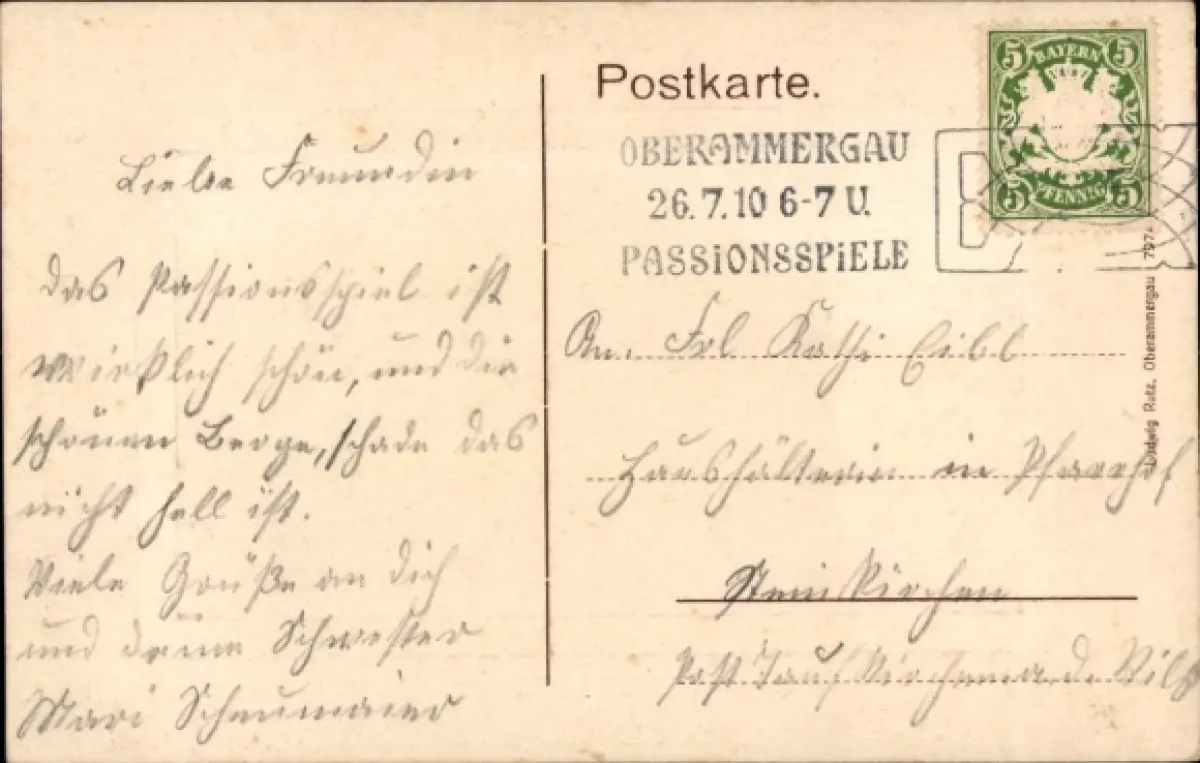 Postkarte.
5 BAYERN 5
5 PFENNIG 5
OBERAMMERGAU
26.7.10 6-7 U.
PASSIONSSPIELE
Liebe Freundin
das Passionsspiel ist
wirklich schön, und die
schönen Berge, schade das
nicht hell ist.
Viele Grüße an dich
und deine Schwester
Mari
An Frl Kathi Eibl
Haushälterin in Pfarrhof
Steinkirchen
Post Taufkirchen a. d. Vils
Ludwig Rutz, Oberammergau